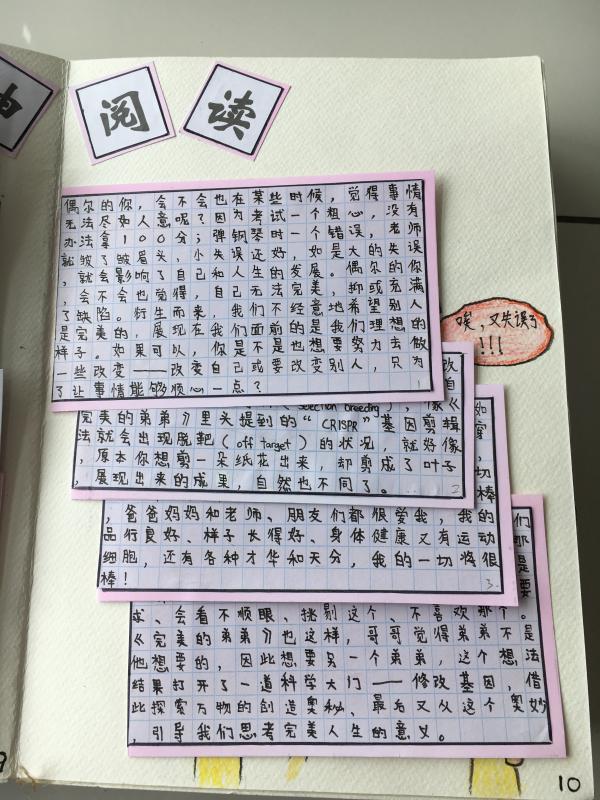 阅读
偶尔的你，会不会也在某些时候，觉得事情
无法尽如人意呢？因为考试一个粗心，没有
办法拿100分；弹钢琴时一个错误，老师
就皱了皱眉头，小失误还好，如是大的失误
，就会影响了自己和人生的发展。偶尔的你
，会不会也觉得，自己无法完美，抑或充满
了缺陷。衍生而来，我们不经意地希望别人
是完美的，展现在我们面前的是我们理想的
样子。如果可以，你是不是也想要努力去做
一些改变——改变自己或要改变别人，只为
了让事情能够顺心一点？
1
唉，又失误了
!!!
改
自
(Selection breeding)，像《
完美的弟弟》里头提到的“CRISPR”基因剪辑
法就会出现脱靶(off target)的状况，就好像
，原本你想剪一朵纸花出来，却剪成了叶子
，展现出来的成果，自然也不同了。
2
如
切
棒
，爸爸妈妈和老师、朋友们都很爱我，我的
品行良好、样子长得好、身体健康又有运动
细胞，还有各种才华和天分，我的一切将很
棒！
3
们
那
是
要
求、会看不顺眼、挑剔这个、不喜欢那个。
《完美的弟弟》也这样，哥哥觉得弟弟不是
他想要的，因此想要另一个弟弟，这个想法
结果打开了一道科学大门——修改基因，借
此探索万物的创造奥秘、最后又从这个奥妙
，引导我们思考完美人生的意义。
10